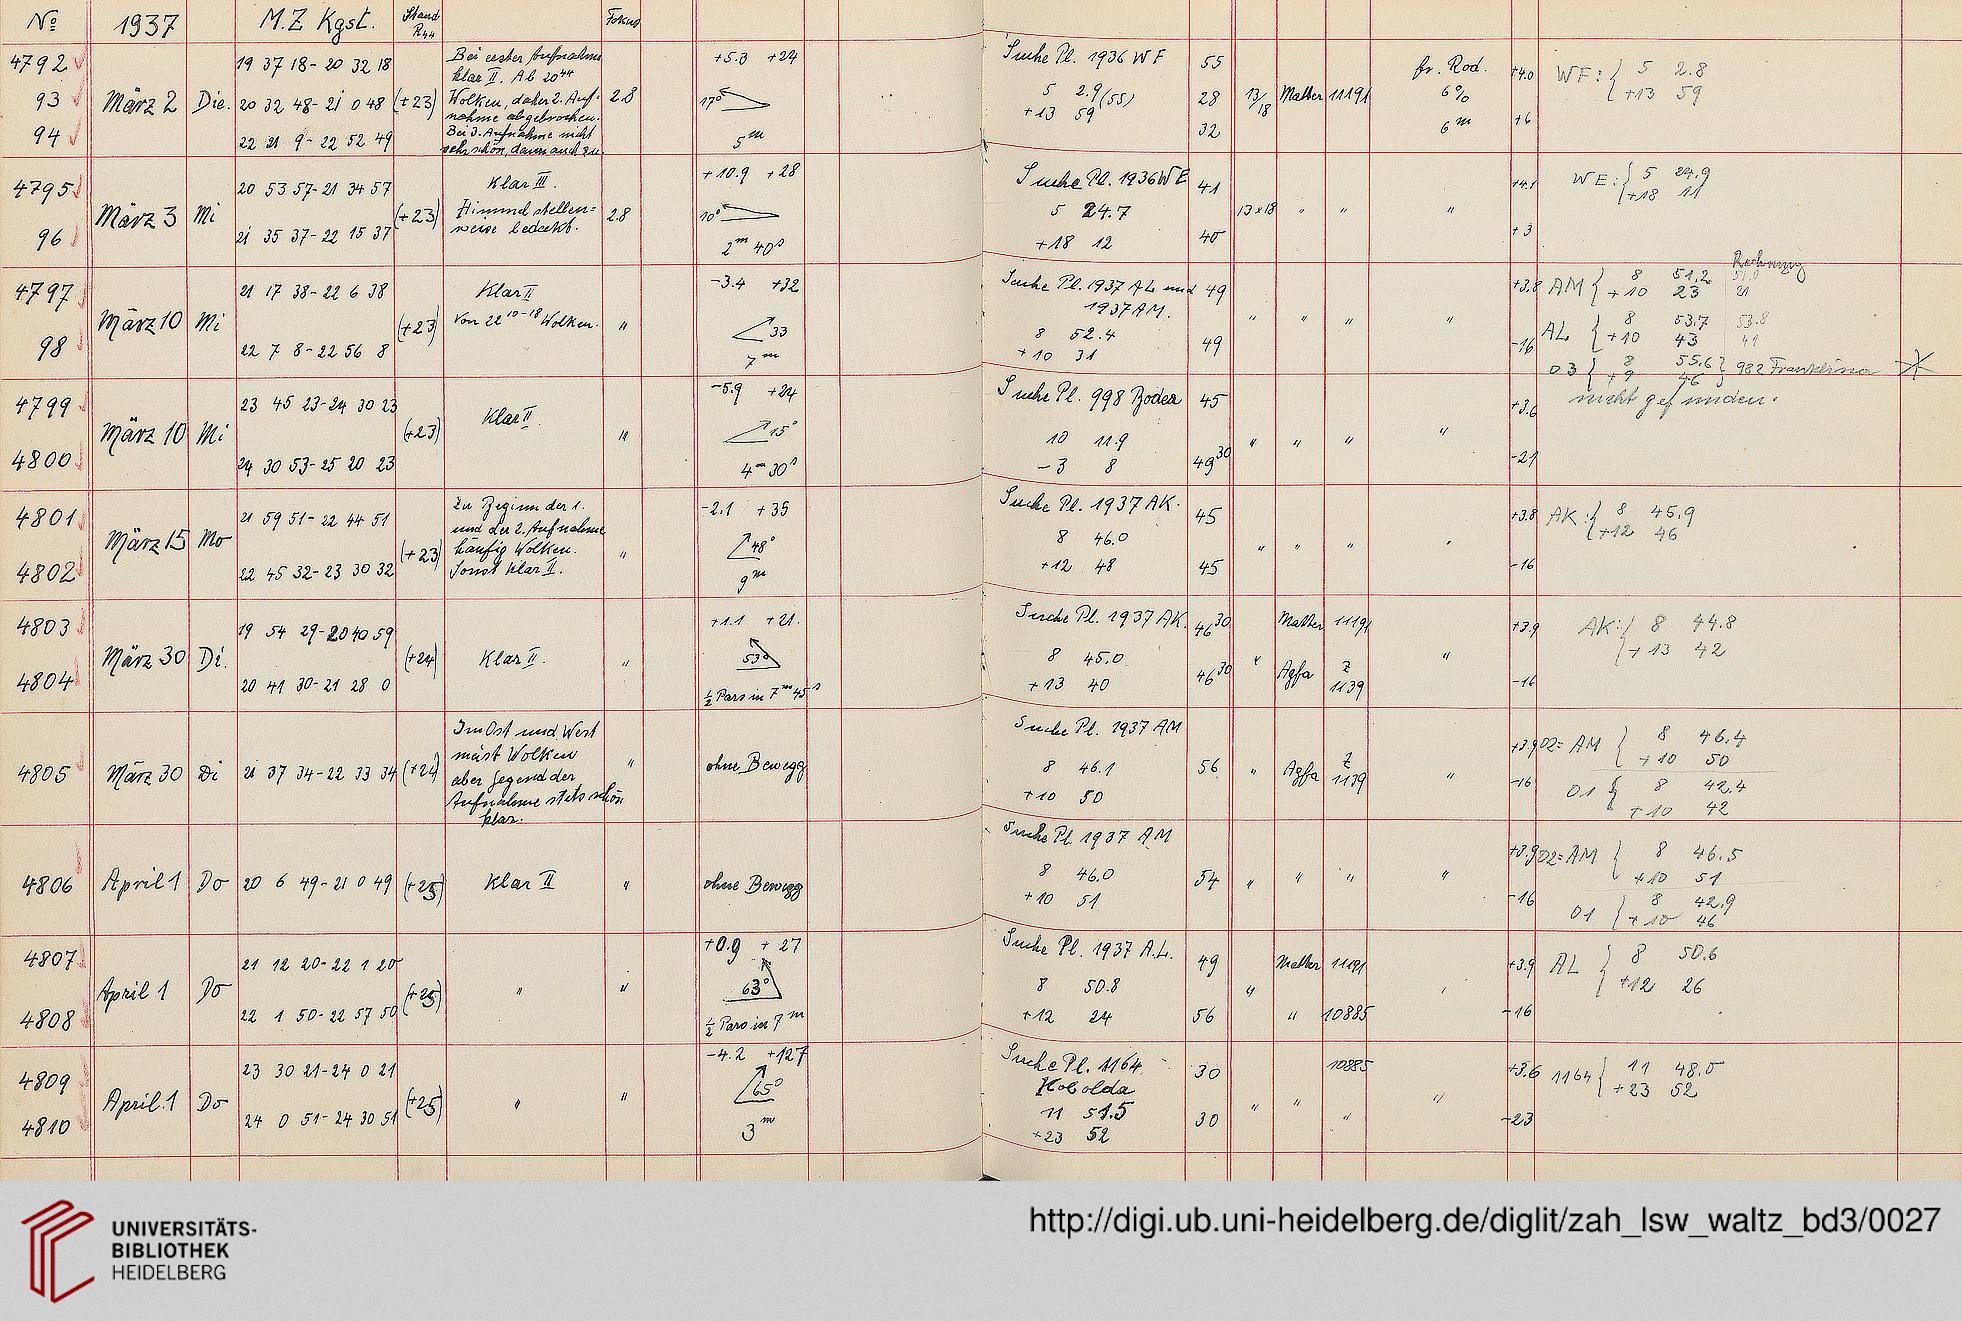 No 1937 M.Z. Kgst. Stand R44 Fokus
4792 19 37 18 - 20 32 18 Bei erster Aufnahme +5.3 +24 Suche Pl. 1936 WF 55 fr. Rod. +4.0 WF: { 5 2.8
klar II. Ab 20 44
93 März 2 Die. 20 32 48 - 21 0 48 (+23) Wolken, daher 2. Auf- 2.8 17° 5 2.9 (55) 28 13/18 Matter 11191 6% +13 59
nahme abgebrochen. +13 59
94 22 21 9 - 22 52 49 Bei 3. Aufnahme nicht 5m 32 6m +6
sehr schön, dann auch zu.
4795 20 53 57 - 21 34 57 Klar III. +10.9 +28 Suche Pl. 1936 WE 41 +4.1 WE: { 5 24.9
+18 11
März 3 Mi (+23) Himmel stellen= 2.8 10° 5 24.7 13x18 " " "
96 21 35 37 - 22 15 37 weise bedeckt. 2m 40s +18 12 40 +3
4797 21 17 38 - 22 6 38 Klar II -3.4 +32 Suche Pl. 1937 AL und 49 +3.8 AM { 8 51.2 Rechnung 51.0
1937 AM. +10 23 21
März 10 Mi (+23) Von 22 10-18 Wolken. " 33 8 52.4 " " " " AL { 8 53.7 53.8
98 22 7 8 - 22 56 8 7m +10 31 49 -16 +10 43 41
03 { 8 55.6 } 982 Franklina
+9 46
4799 23 45 23 - 24 30 23 Klar II. -5.9 +24 Suche Pl. 998 Bodea 45 +3.6 nicht gefunden.
März 10 Mi (+23) " 15° 10 11.9 " " " "
4800 24 30 53 - 25 20 23 4m 30s -3 8 49 30 -21
4801 21 59 51 - 22 44 51 Zu Beginn der 1. -2.1 +35 Suche Pl. 1937 AK. 45 +3.8 AK: { 8 45.9
und der 2. Aufnahme +12 46
März 15 Mo (+23) häufig Wolken. " 48° 8 46.0 " " " "
4802 22 45 32 - 23 30 32 Sonst klar II. 9m +12 48 45 -16
4803 19 54 29 - 20 40 59 +1.1 +21. Suche Pl. 1937 AK. 46 30 Matter 11191 +3.9 AK: { 8 44.8
März 30 Di. (+24) Klar II. " 53° 8 45.0 " " +13 42
4804 20 41 30 - 21 28 0 ½ Pars in 7m 45s +13 40 46 30 Agfa Z 1139 -16
Im Ost und West Suche Pl. 1937 AM
meist Wolken +3.9 02 = AM { 8 46.4
4805 März 30 Di 21 37 34 - 22 33 34 (+24) aber Gegend der " ohne Bewegg 8 46.1 56 " Agfa Z 1139 " +10 50
Aufnahme stets schön +10 50 -16 01 { 8 42.4
klar. +10 42
Suche Pl. 1937 AM +3.9 02 = AM { 8 46.5
4806 April 1 Do 20 6 49 - 21 0 49 (+25) Klar II " ohne Bewegg 8 46.0 54 " " " " +10 51
+10 51 -16 01 { 8 42.9
+10 46
4807 21 12 20 - 22 1 20 +0.9 +27 Suche Pl. 1937 A.L. 49 Matter 11191 +3.9 AL { 8 50.6
April 1 Do (+25) " " 63° 8 50.8 " " +12 26
4808 22 1 50 - 22 57 50 ½ Pars in 7m +12 24 56 " 10885 -16
4809 23 30 21 - 24 0 21 -4.2 +127 Suche Pl. 1164 30 10885 +3.6 1164 { 11 48.0
Kobolda +23 52
April 1 Do (+25) " " 65° 11 51.5 " " " "
4810 24 0 51 - 24 30 51 3m +23 52 30 -23
UNIVERSITÄTS-
BIBLIOTHEK
HEIDELBERG
http://digi.ub.uni-heidelberg.de/diglit/zah_lsw_waltz_bd3/0027